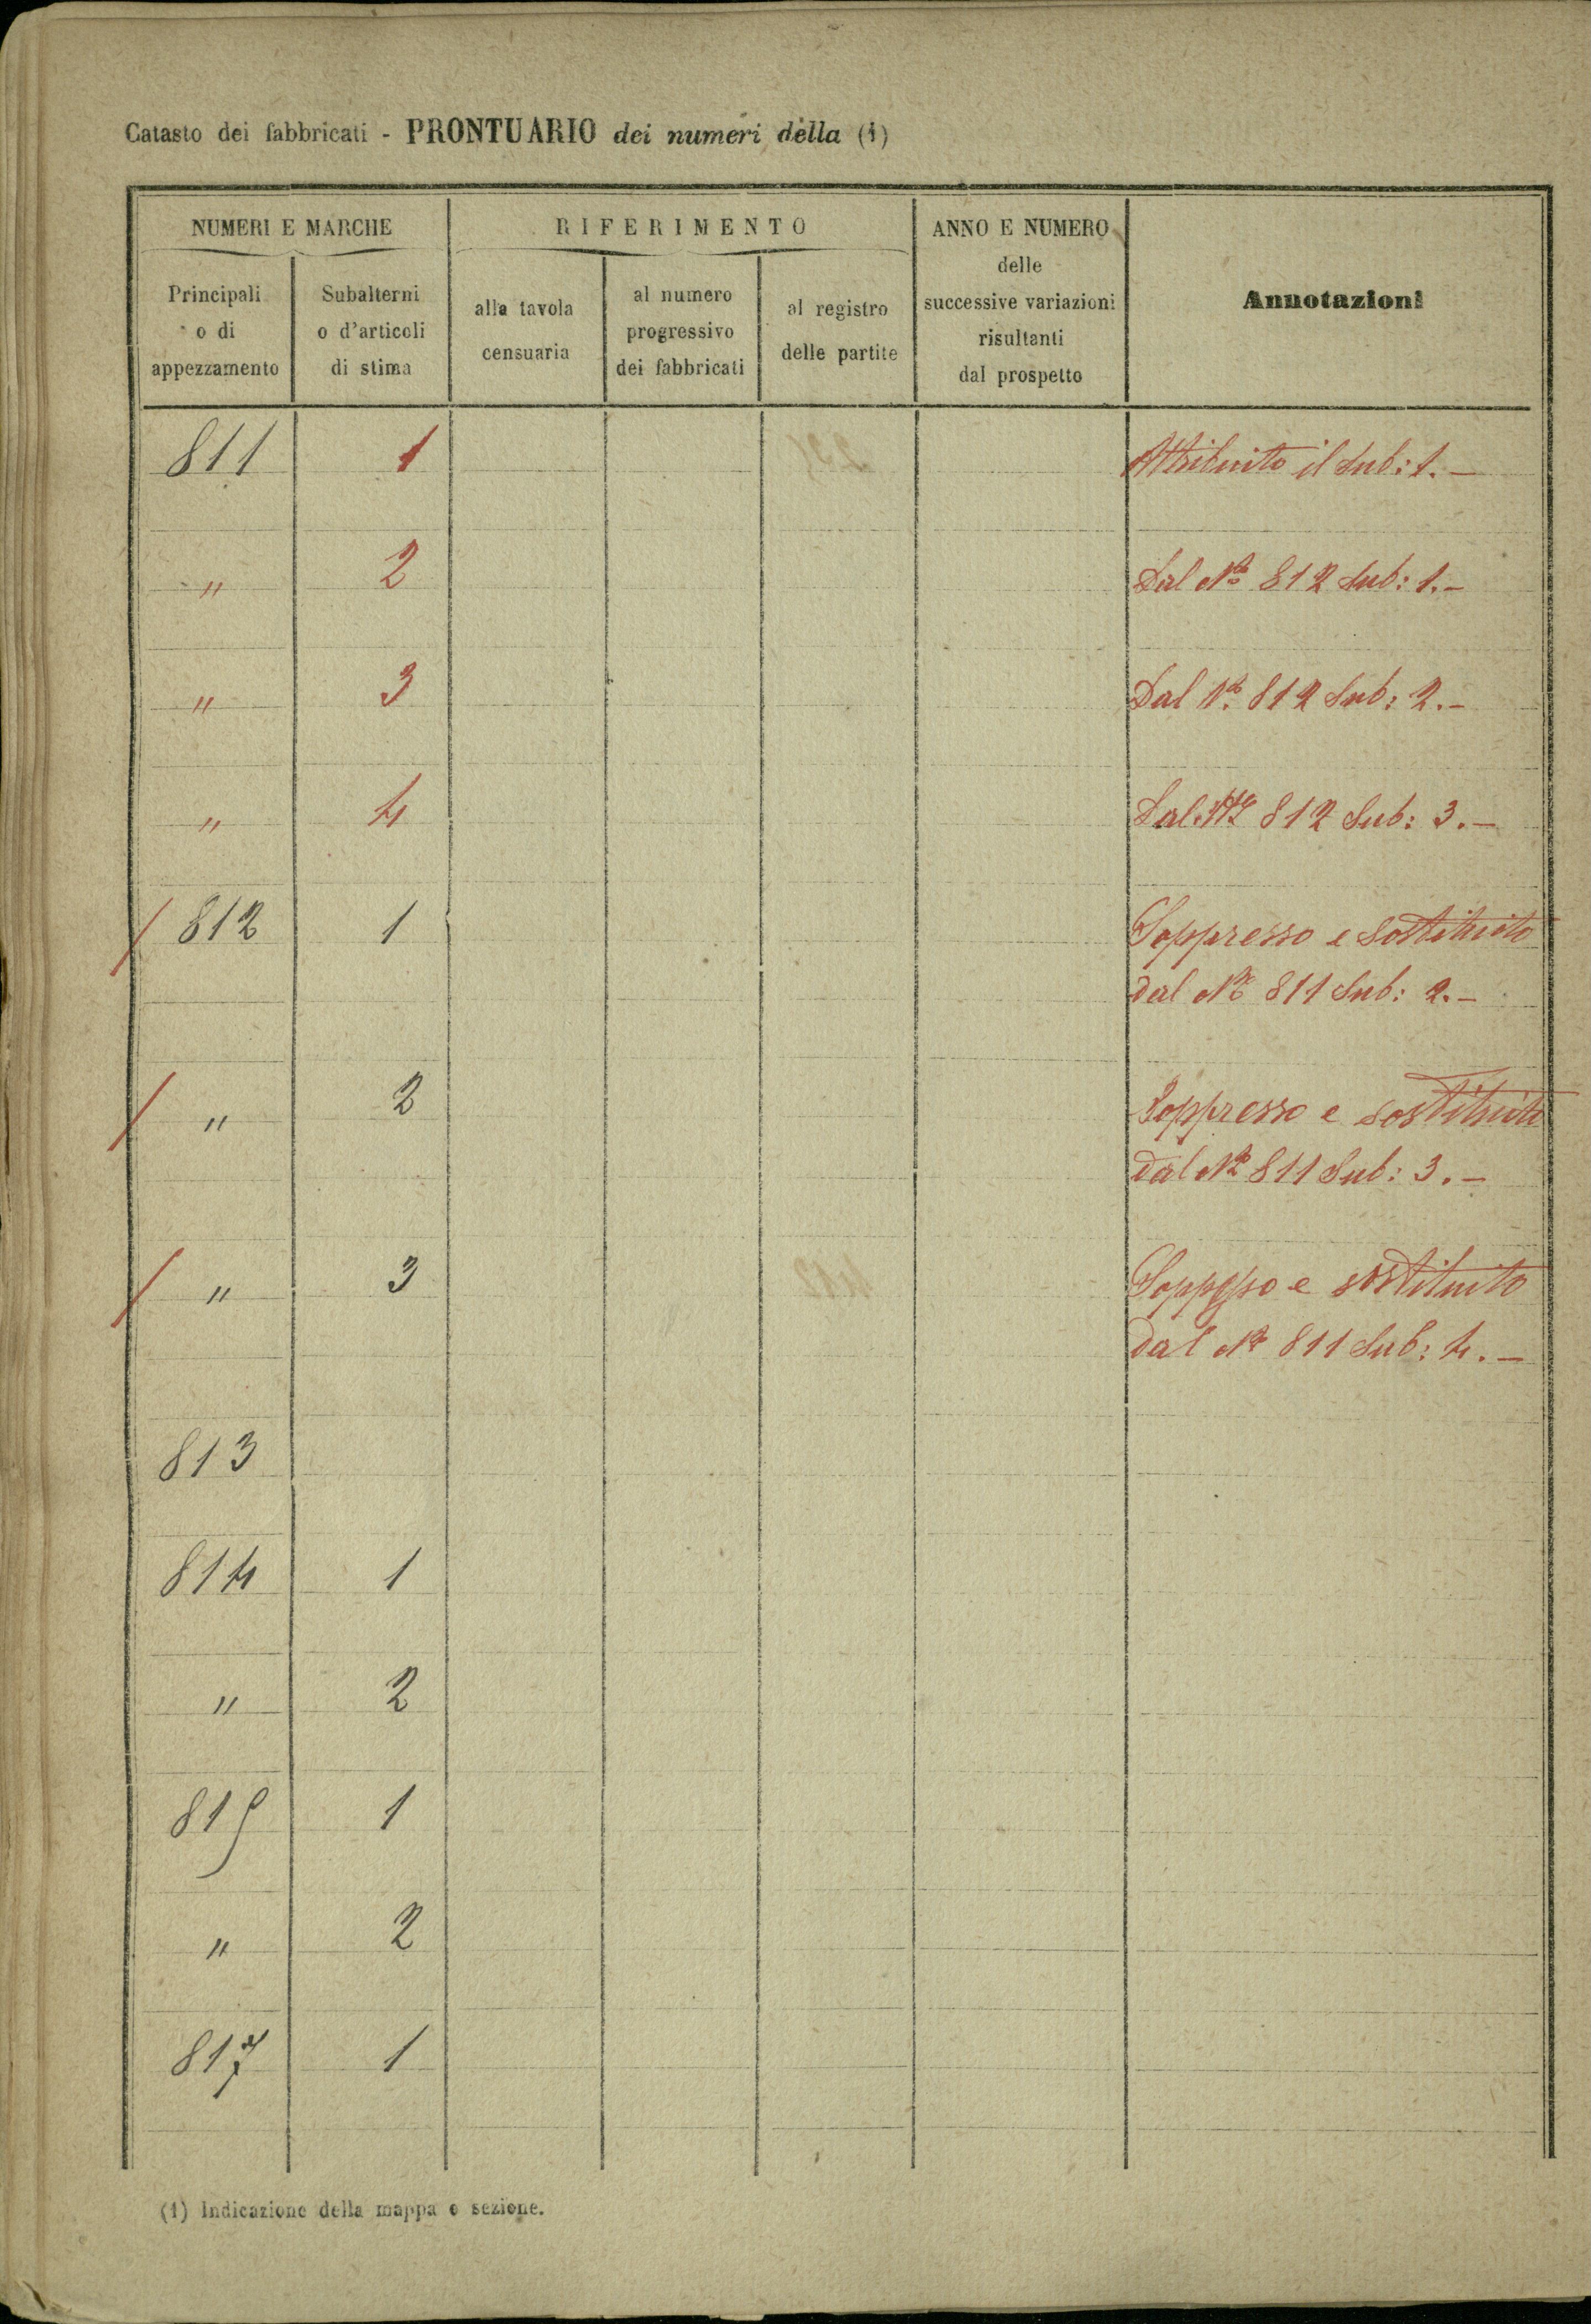 Catasto dei fabbricati - PRONTUARIO dei numeri della (1)
NUMERI E MARCHE
RIFERIMENTO
ANNO E NUMERO
delle
successive variazioni
risultanti
dal prospetto
Annotazioni
Principali
o di
appezzamento
Subalterni
o d'articoli
di stima
alla tavola
censuaria
al numero
progressivo
dei fabbricati
al registro
delle partite
811 1 Attribuito il Sub: 1. –
" 2 Dal No 812 Sub: 1. –
" 3 Dal No 812 Sub: 2. –
" 4 Dal No 812 Sub: 3. –
/ 812 1 Soppresso e sostituito
dal No 811 Sub: 2. –
/ " 2 Soppresso e sostituito
dal No 811 Sub: 3. –
/ " 3 Soppresso e sostituito
dal No 811 Sub: 4. –
813
814 1
" 2
815 1
" 2
817 1
(1) Indicazione della mappa e sezione.